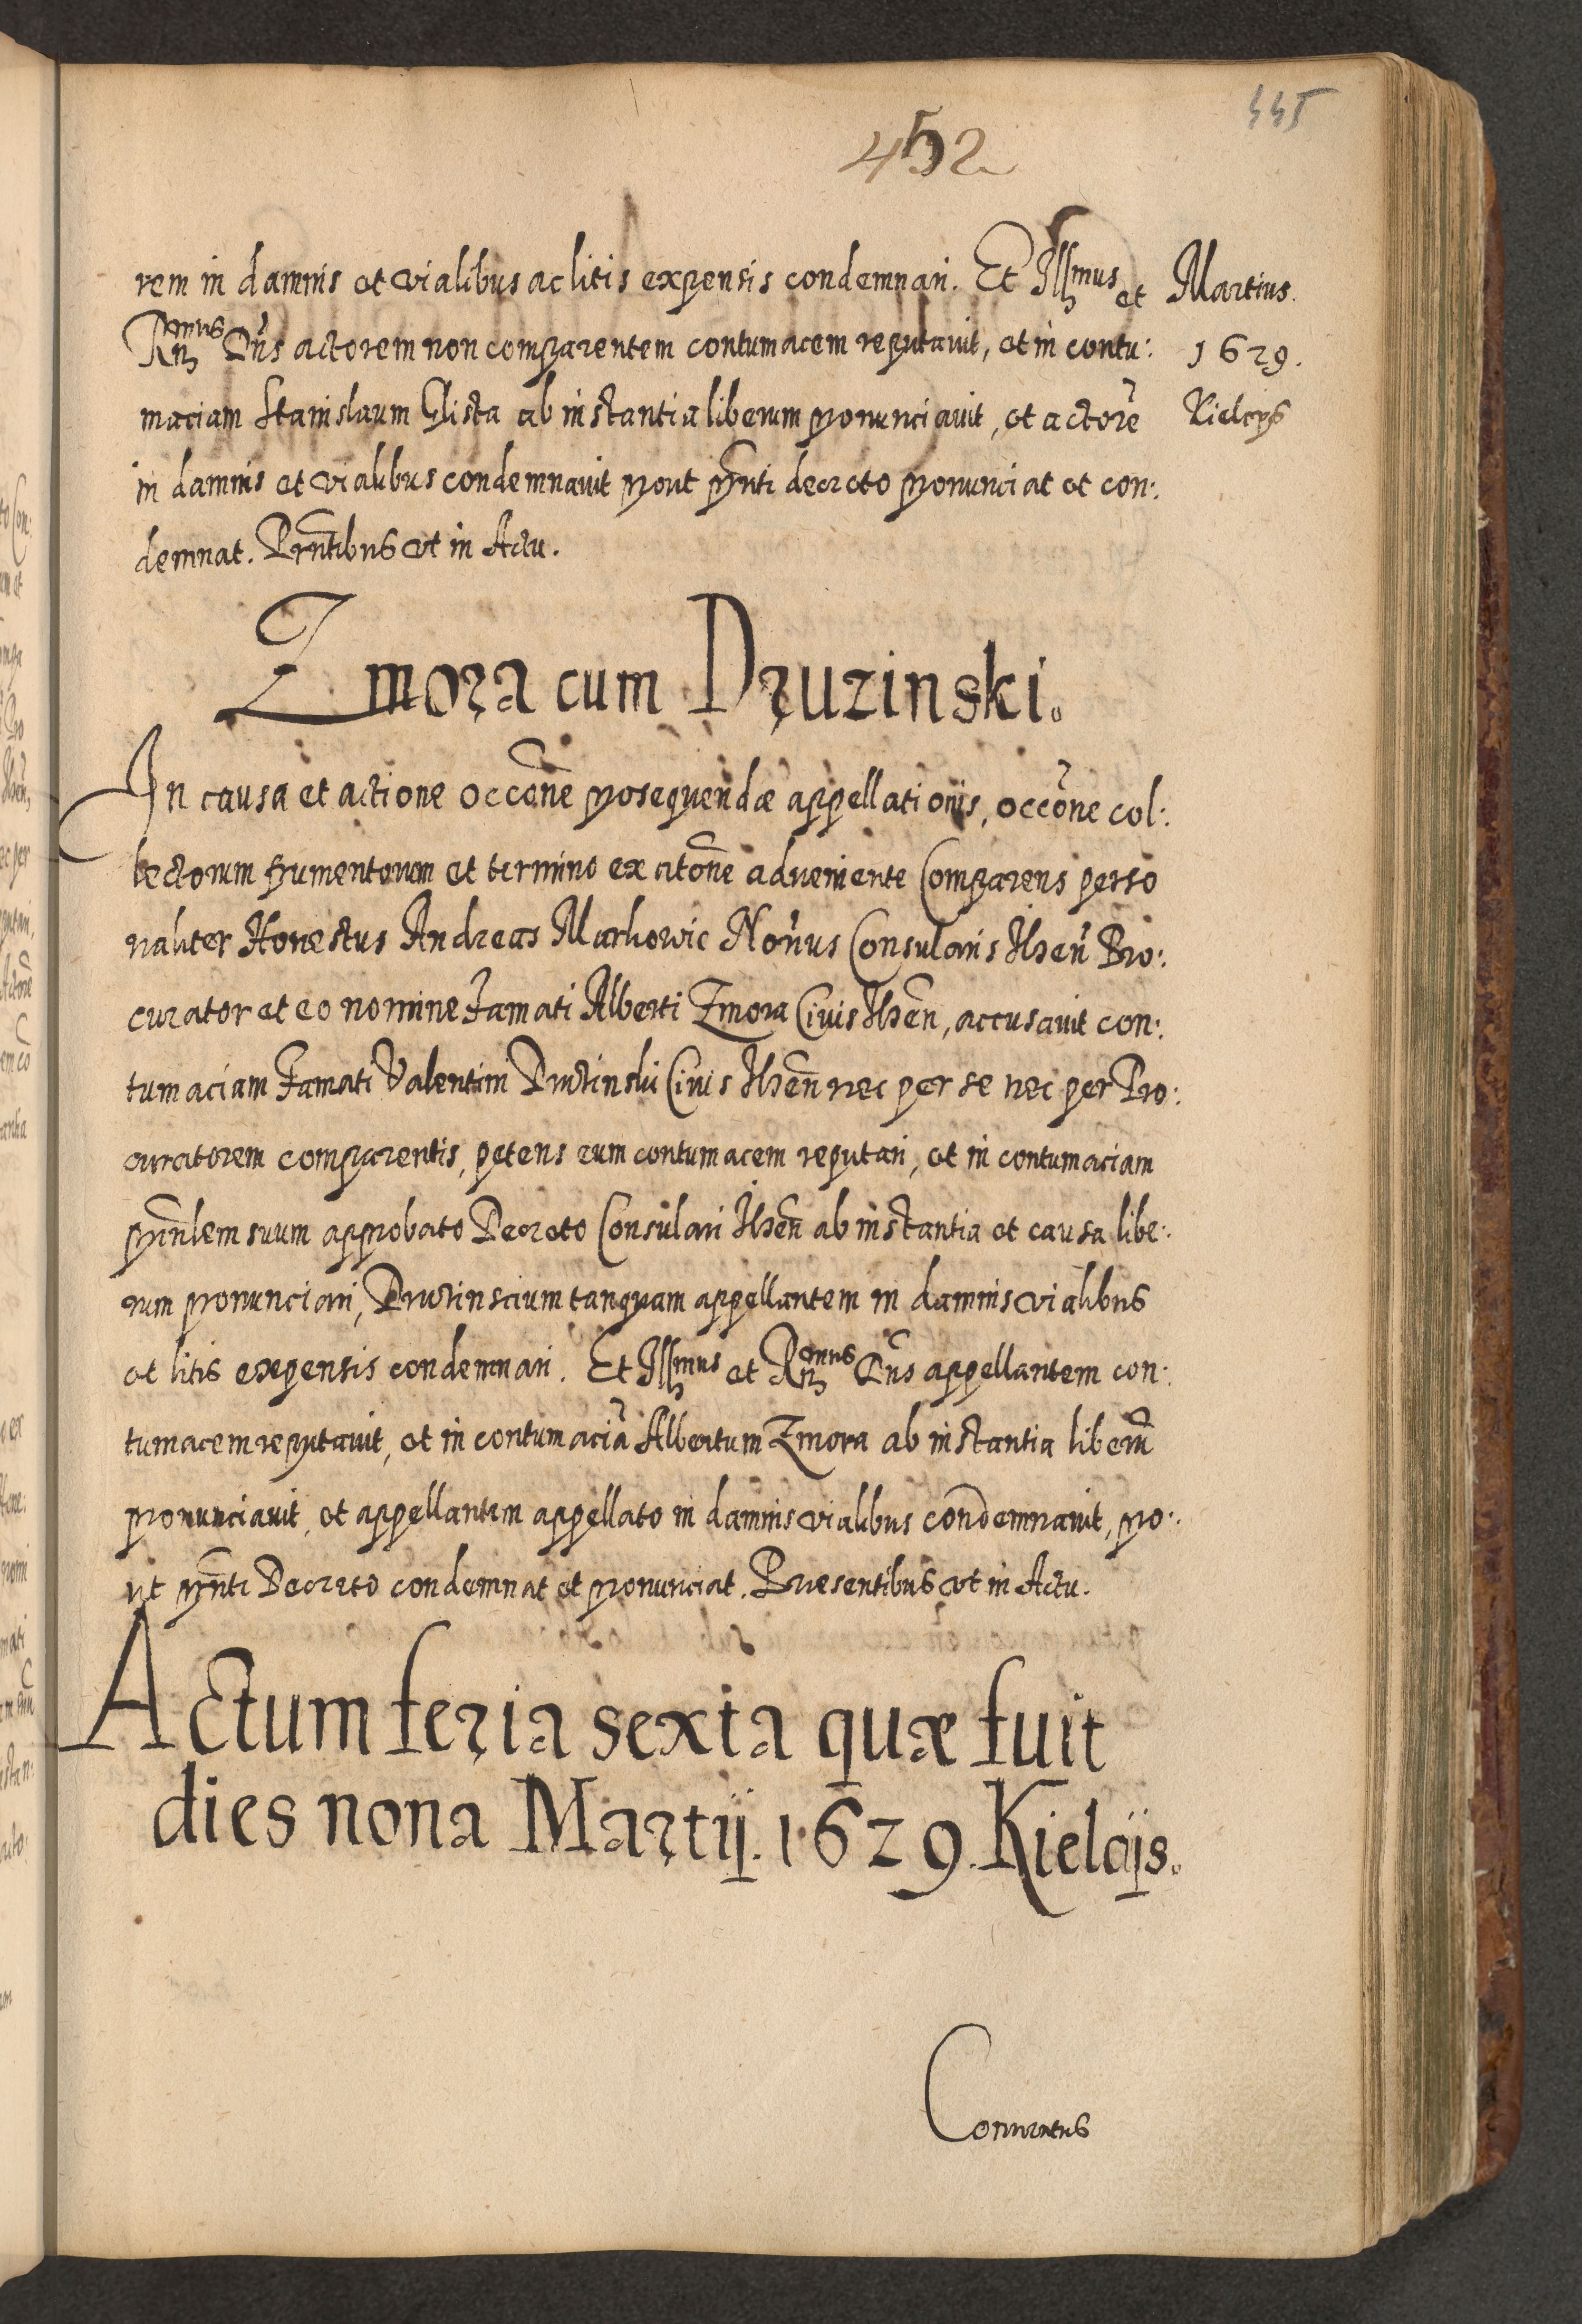 445
452
rem in damnis et vialibus ac litis expensis condemnari. Et Illmus et
Rmus Dñs actorem non comparentem contumacem reputavit, et in contu:
maciam Stanislaum Glista ab instantia liberum pronunciavit, et actorẽ
in damnis et vialibus condemnavit prout pñti decreto pronunciat et con:
demnat. Prñtibus ut in Actu.
Martius.
1629.
Kielcys
Zmora cum Druzinski.
In causa et actione occõne prosequendæ appellationis, occõne col:
lectorum frumentorum et termino ex citõne adveniente Comparens perso
naliter Honestus Andreas Markowic Noṽus Consularis Ilzeñ Pro:
curator et eo nomine Famati Alberti Zmora Civis Ilzeñ, accusavit con:
tumaciam Famati Valentini Druzinski Civis Ilzeñ nec per se nec per Pro:
curatorem comparentis, petens eum contumacem reputari, et in contumaciam
prinlem suum approbato Decreto Consulari Ilzeñ ab instantia et causa libe:
rum pronunciari, Druzinscium tanquam appellantem in damnis vialibus
et litis expensis condemnari. Et Illmus et Rmus Dñs appellantem con:
tumacem reputavit, et in contumaciã Albertum Zmora ab instantia liberũ
pronunciavit, et appellantem appellato in damnis vialibus condemnavit, pro:
ut pñti Decreto condemnat et pronunciat. Presentibus ut in Actu.
Actum feria sexta quæ fuit
dies nona Martij. 1629. Kielcijs.